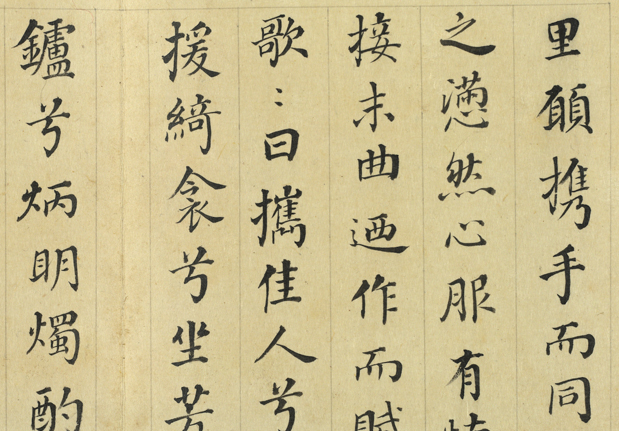 里願携手而同
之懣然心服有
接末曲迺作而賦
歌〻曰攜佳人兮
援綺衾兮坐芳
鑪兮炳眀燭酌